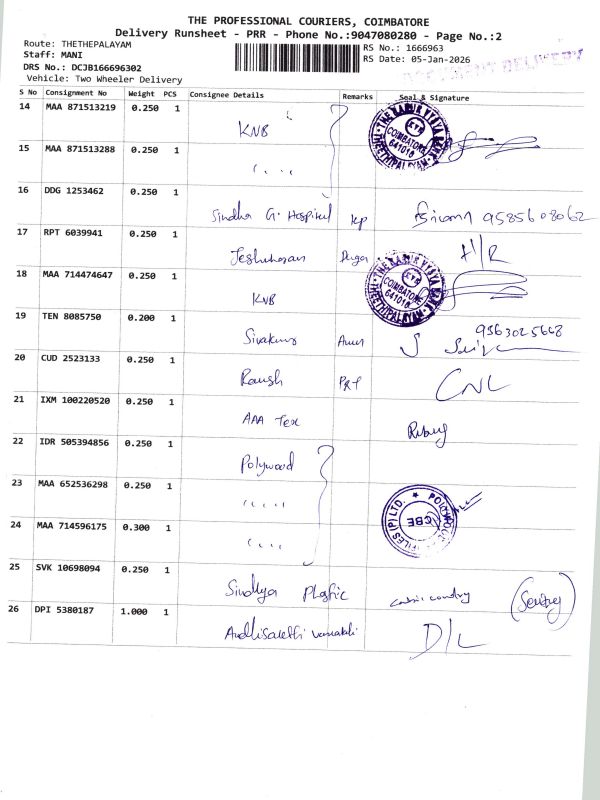 THE PROFESSIONAL COURIERS, COIMBATORE
Delivery Runsheet - PRR - Phone No.:9047080280 - Page No.:2
Route: THETHEPALAYAM
Staff: MANI
DRS No.: DCJB166696302
Vehicle: Two Wheeler Delivery
RS No.: 1666963
RS Date: 05-Jan-2026
DOCUMENT DELIVERY
S No Consignment No Weight PCS Consignee Details Remarks Seal & Signature
14 MAA 871513219 0.250 1 KVB
THE KARUR VYSYA BANK
KVB
COIMBATORE
641010
THEETHIPALAYAM
15 MAA 871513288 0.250 1 " "
16 DDG 1253462 0.250 1 Sindhu G. Hospital 9585608062
17 RPT 6039941 0.250 1
18 MAA 714474647 0.250 1 KVB
THE KARUR VYSYA BANK
COIMBATORE
641010
THEETHIPALAYAM
19 TEN 8085750 0.200 1 Sivakumar 9363025668
20 CUD 2523133 0.250 1 CNL
21 IXM 100220520 0.250 1 AAA Tex
22 IDR 505394856 0.250 1 Polywood
23 MAA 652536298 0.250 1 " "
CBE
24 MAA 714596175 0.300 1 " "
25 SVK 10698094 0.250 1 Sindhya Plastic
26 DPI 5380187 1.000 1 D/L